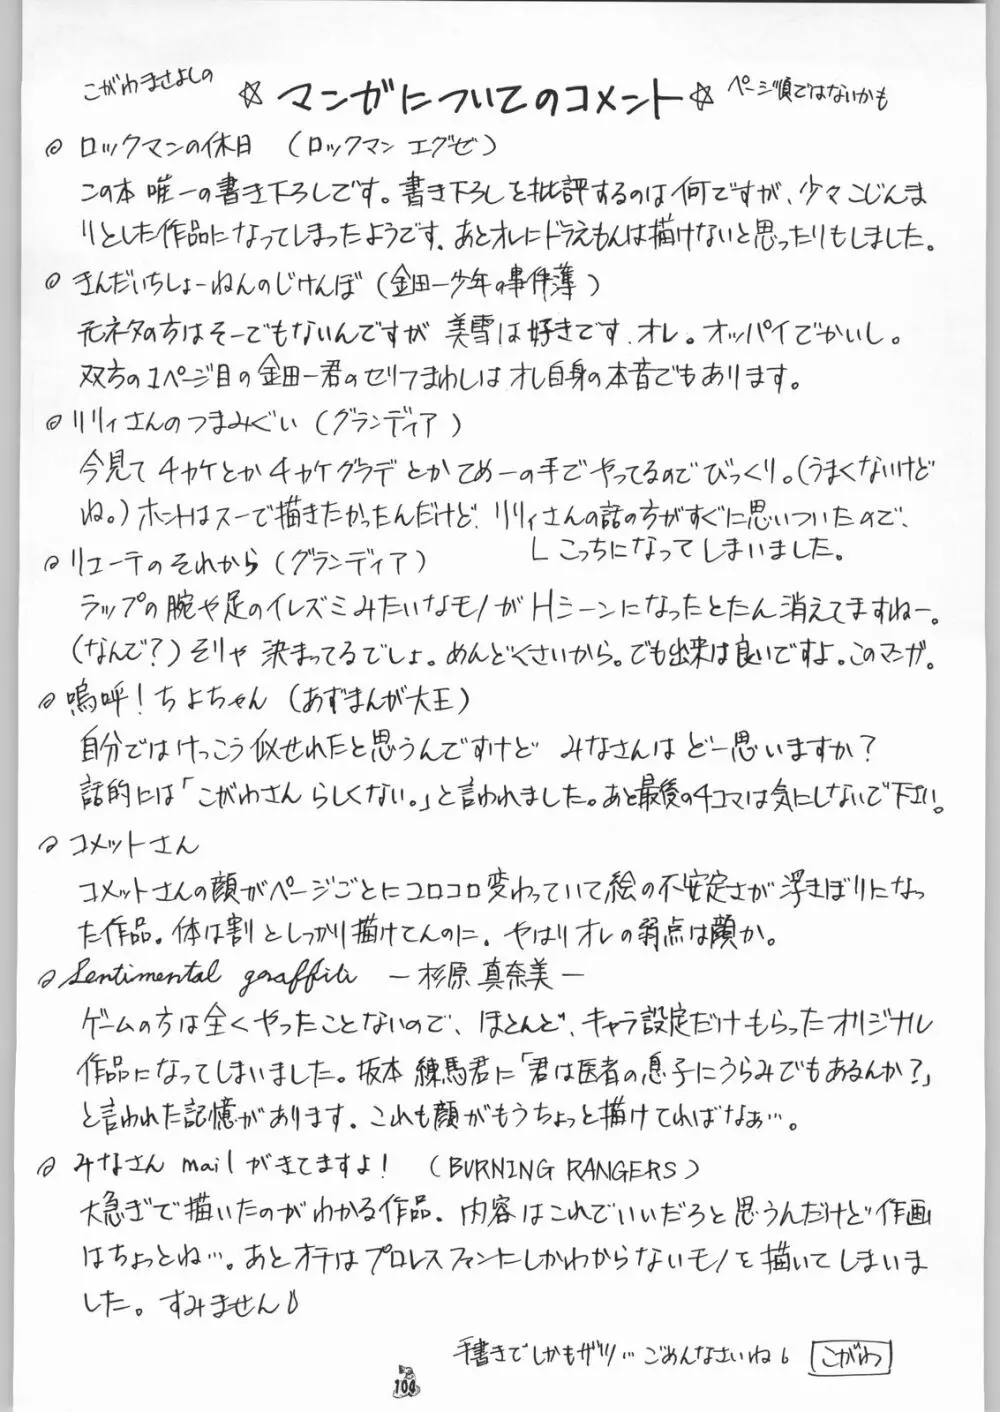 こがわまさよしの
☆ マンガについてのコメント ☆
ページ順ではないかも
ロックマンの休日 (ロックマン エグゼ)
この本 唯一の書き下ろしです。書き下ろしを批評するのは何ですが、少々こじんま
りとした作品になってしまったようです。あとオレにドラえもんは描けないと思ったりもしました。
きんだいちしょーねんのじけんぼ (金田一少年の事件簿)
元ネタの方はそーでもないんですが 美雪は好きです、オレ。オッパイでかいし。
双方の1ページ目の金田一君のセリフまわしはオレ自身の本音でもあります。
リリィさんのつまみぐい (グランディア)
今見て チカケとかチカケグラデとかてめーの手でやってるのでびっくり。(うまくないけど
ね。) ホントはスーで描きたかったんだけど、リリィさんの話の方がすぐに思いついたので、
こっちになってしまいました。
リエーテのそれから (グランディア)
ラップの腕や足のイレズミみたいなモノがHシーンになったとたん消えてますねー。
(なんで?) そりゃ 決まってるでしょ。めんどくさいから。でも出来は良いですよ。このマンガ。
嗚呼! ちよちゃん (あずまんが大王)
自分ではけっこう似せれたと思うんですけど みなさんはどー思いますか?
話的には「こがわさん らしくない。」と言われました。あと最後の4コマは気にしないで下さい。
コメットさん
コメットさんの顔がページごとにコロコロ変わっていて絵の不安定さが浮きぼりになっ
た作品。体は割としっかり描けてんのに。やはりオレの弱点は顔か。
Sentimental graffiti ー杉原 真奈美ー
ゲームの方は全くやったことないので、ほとんど、キャラ設定だけもらったオリジナル
作品になってしまいました。坂本 練馬君に「君は医者の息子にうらみでもあるんか?」
と言われた記憶があります。これも顔がもうちょっと描けてればなぁ…。
みなさん mailがきてますよ! (BURNING RANGERS)
大急ぎで描いたのがわかる作品。内容はこれでいいだろと思うんだけど作画
はちょっとね…。あとオチはプロレスファンにしかわからないモノを描いてしまいま
した。すみません♪
手書きでしかもザツ… ごめんなさいね。
こがわ
104